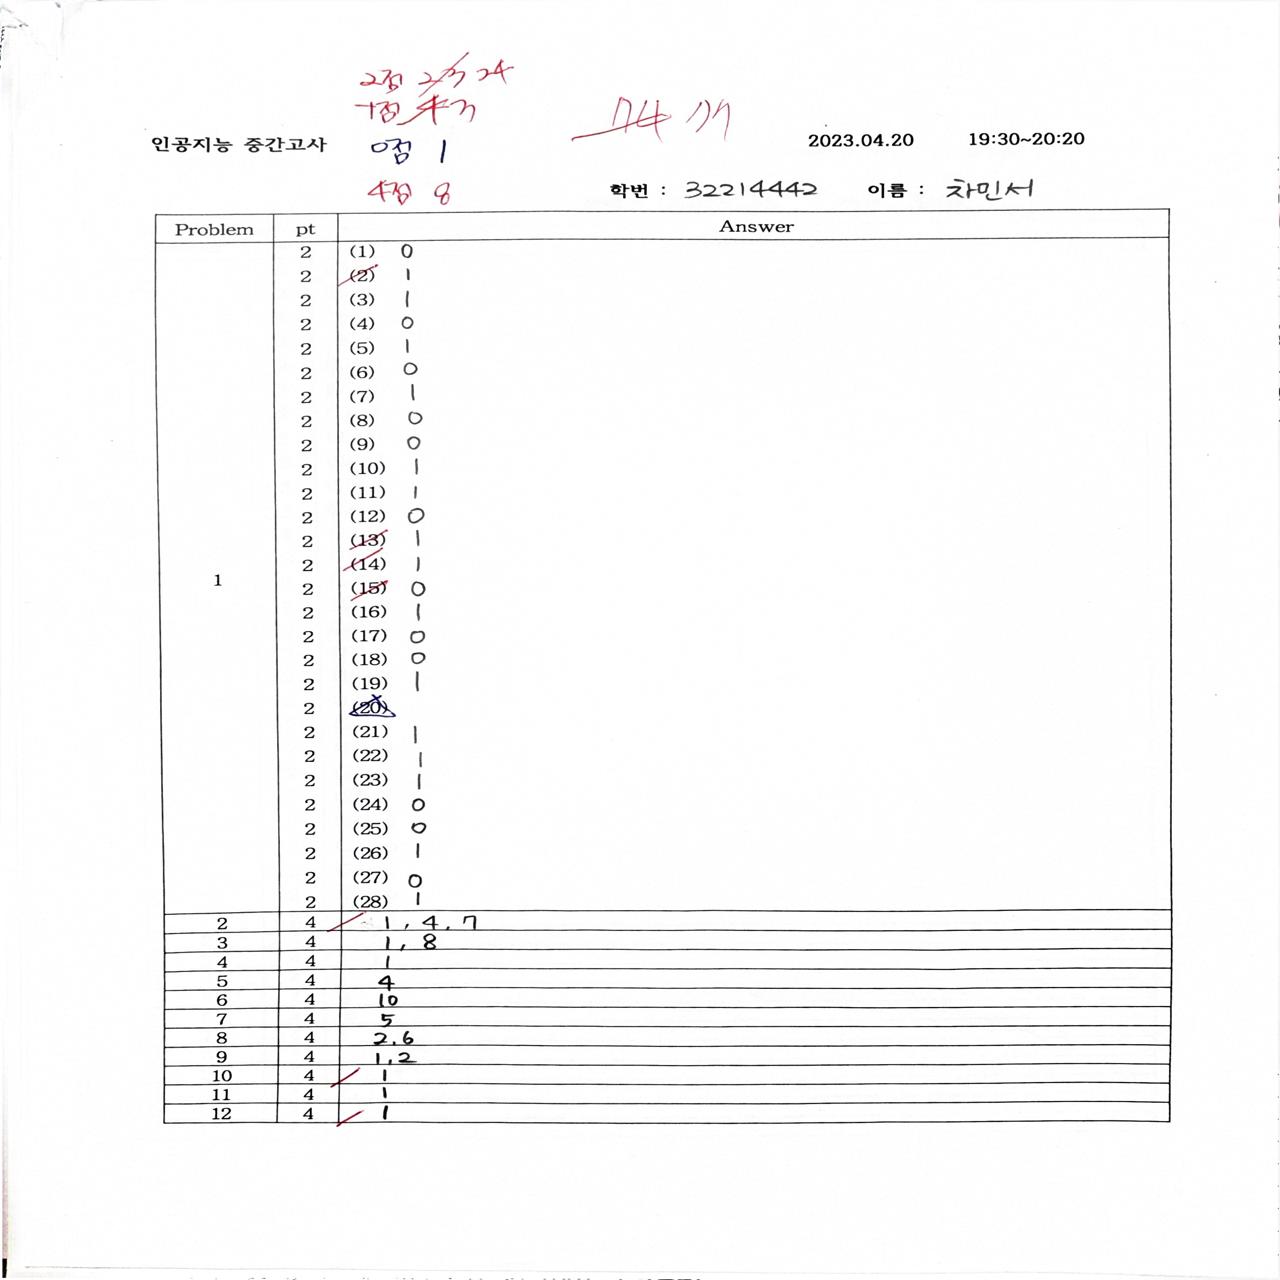 2점 2/3 24
-1점 4 3
인공지능 중간고사 0점 1 74 77 2023.04.20 19:30~20:20
4점 8 학번 : 32214442 이름 : 차민서
Problem pt Answer
2 (1) 0
2 (2) 1
2 (3) 1
2 (4) 0
2 (5) 1
2 (6) 0
2 (7) 1
2 (8) 0
2 (9) 0
2 (10) 1
2 (11) 1
2 (12) 0
2 (13) 1
2 (14) 1
1 2 (15) 0
2 (16) 1
2 (17) 0
2 (18) 0
2 (19) 1
2 (20)
2 (21) 1
2 (22) 1
2 (23) 1
2 (24) 0
2 (25) 0
2 (26) 1
2 (27) 0
2 (28) 1
2 4 1, 4, 7
3 4 1, 8
4 4 1
5 4 4
6 4 10
7 4 5
8 4 2,6
9 4 1,2
10 4 1
11 4 1
12 4 1